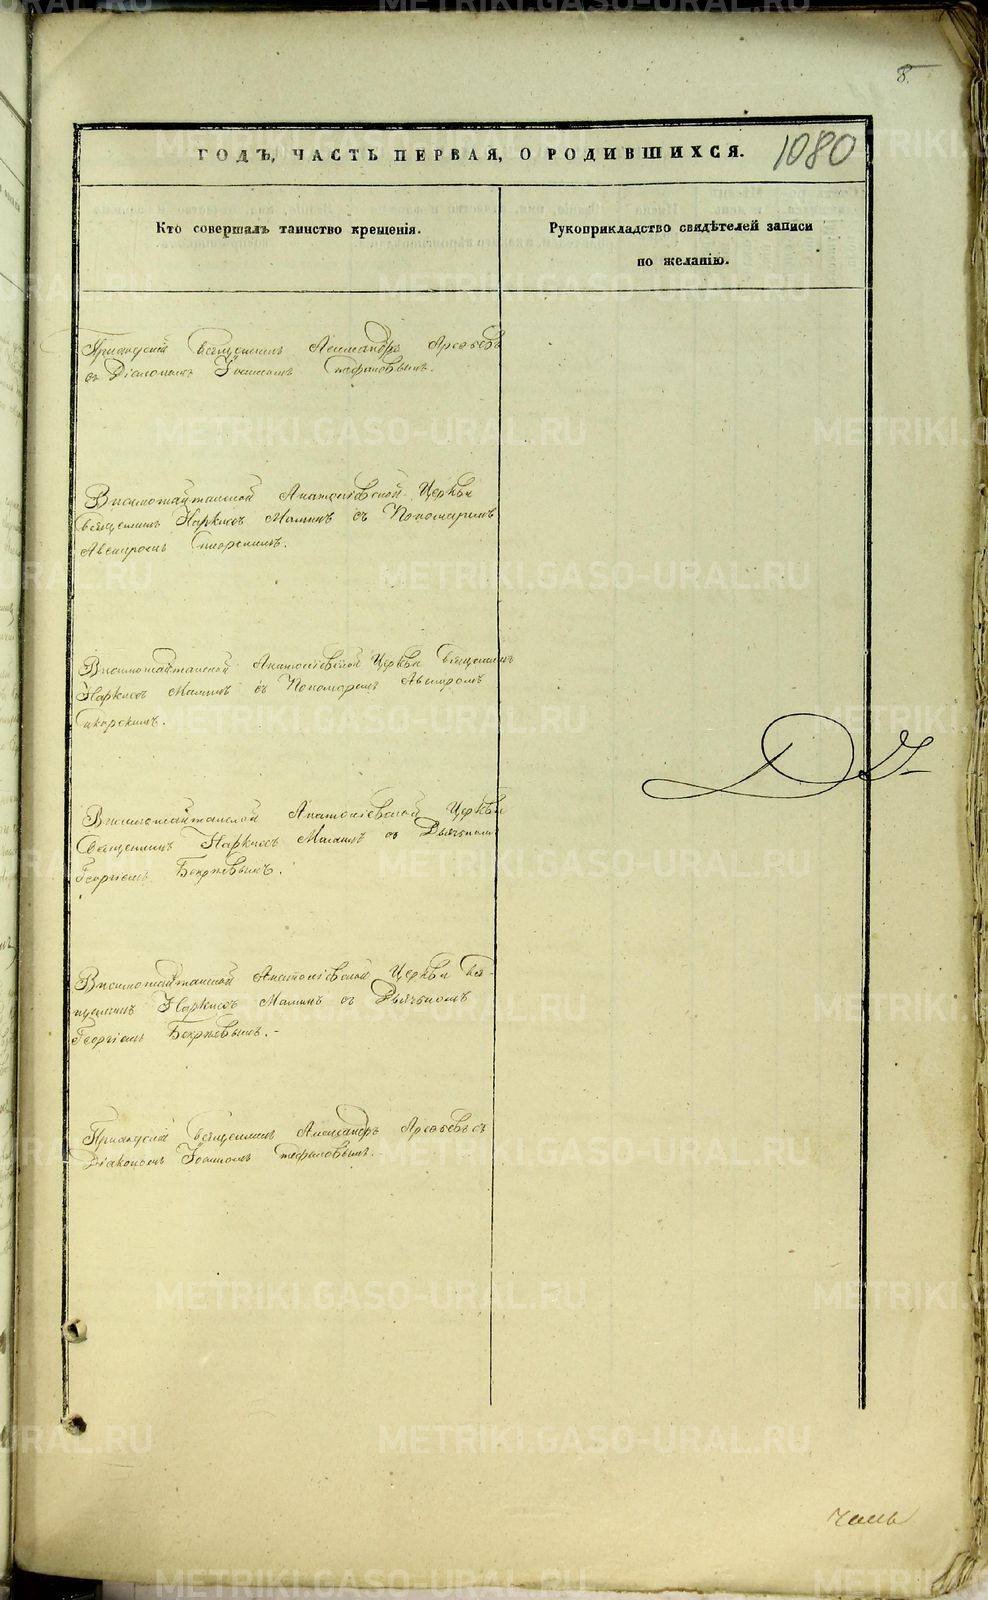 8.
ГОДЪ, ЧАСТЬ ПЕРВАЯ, О РОДИВШИХСЯ. 1080
Кто совершалъ таинство крещенія.
Рукоприкладство свидѣтелей записи
по желанію.
Приходскій Священникъ Александръ
съ Діакономъ Іоанномъ Стефановымъ.
Висимошайтанской Анатоліевской Церкви
Священникъ Наркисъ Маминъ съ Пономаремъ
Висимошайтанской Анатоліевской Церкви Священникъ
Наркисъ Маминъ съ Пономаремъ
Висимошайтанской Анатоліевской Церкви
Священникъ Наркисъ Маминъ съ Дьячкомъ
Георгіемъ
Висимошайтанской Анатоліевской Церкви Свя-
щенникъ Наркисъ Маминъ съ Дьячкомъ
Георгіемъ
Приходскій Священникъ Александръ съ
Діакономъ Іоанномъ Стефановымъ.
METRIKI.GASO-URAL.RU